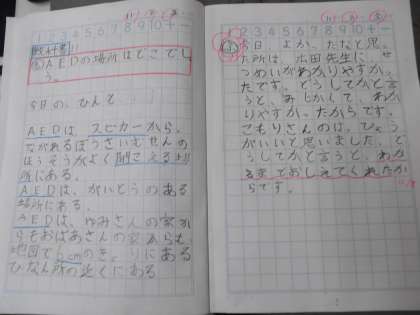 1 2 3 4 5 6 7 8 9 10
AEDの場所はどこでしょ
う。
今日の、ひんと
AEDは、スピカーから、
ながれるぼうさいむせんの
ほうそうがよく聞こえる
所にある。
AEDは、がいとうのある
場所にある。
AEDは、ゆみさんの家か
らもおばあさんの家からも
地図で6cmのき。りにある
ひなん所の近くにある
2 3 4 5 6 7 8 9 10
今日、よか、たなと思、
た所は、広田先生に、せ
つめいがわかりやすか、
たです。どうしてかと言
うと、みじかくて、わか
りやすか、たからです。
こもりさんのは、ひょう
がいいと思いました。ど
うしてかと言うと、わか
るまでおしえてくれたか
らです。